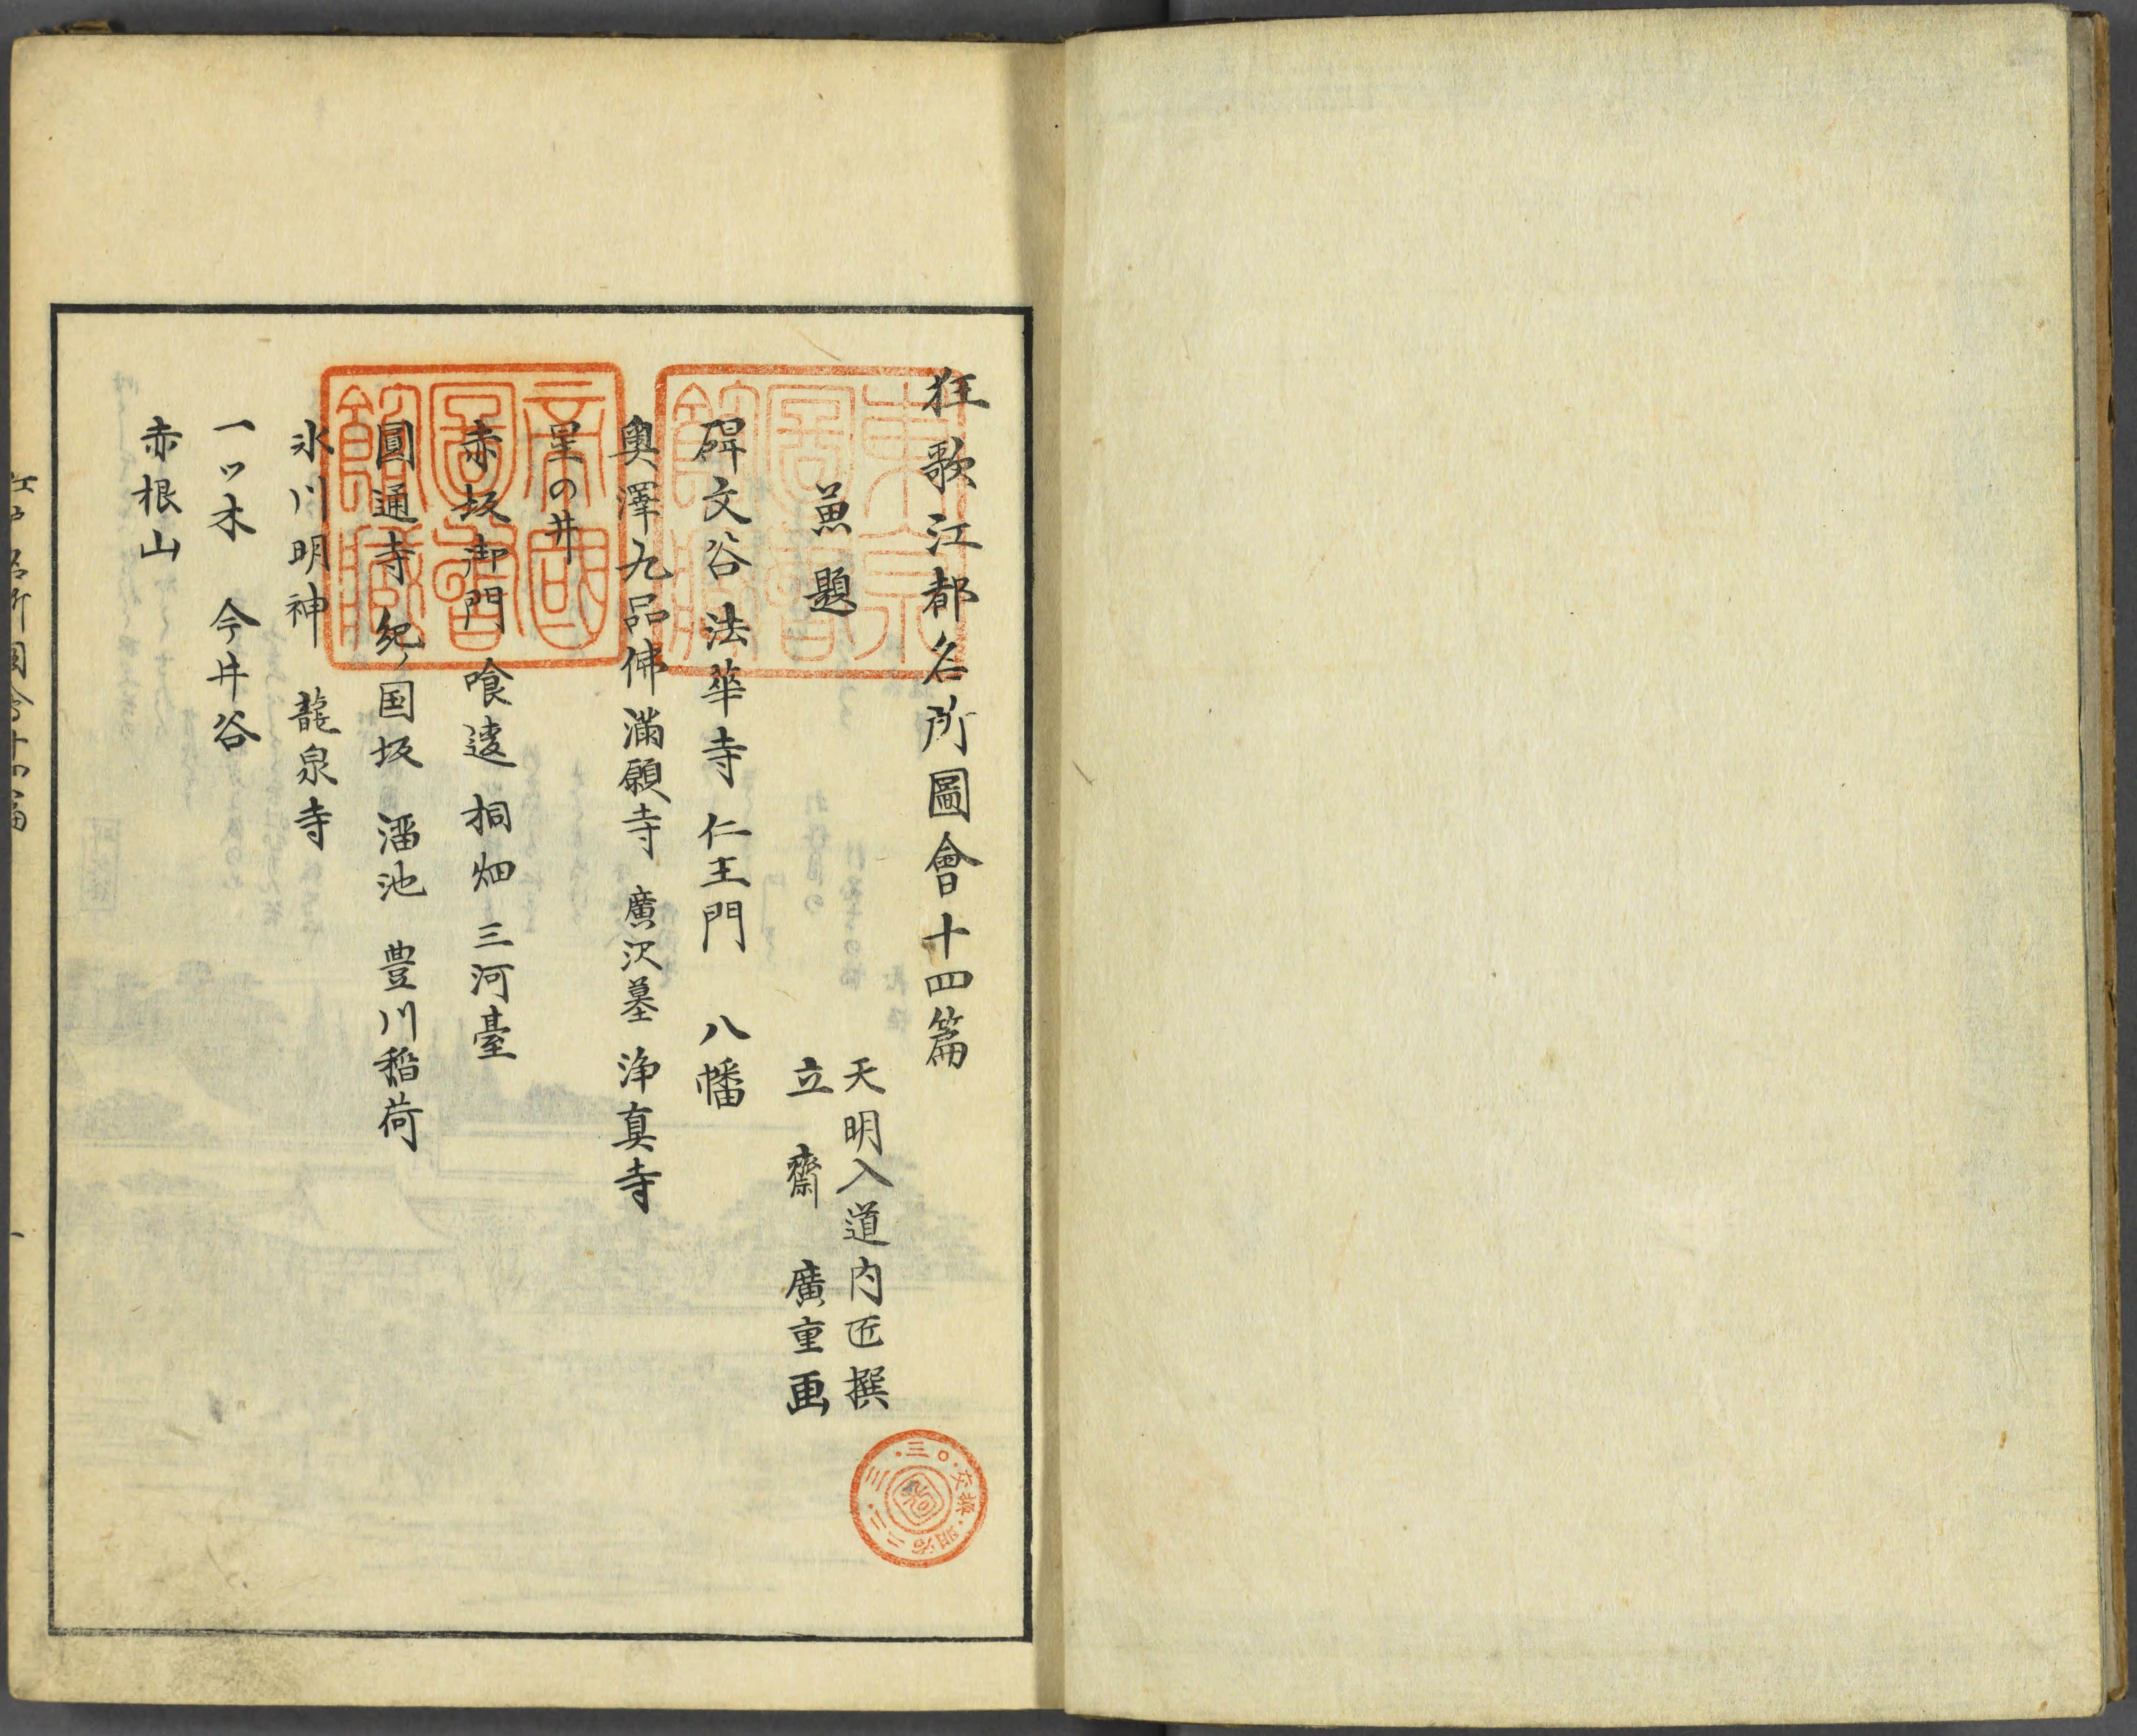 狂歌江都名所圖會十四篇
天明入道内匠撰
立齋廣重画
兼題
碑文谷法華寺 仁王門 八幡
奥澤九品佛 滿願寺 廣沢墓 浄真寺
星の井
赤坂御門 喰違 桐畑 三河臺
圓通寺 紀ノ国坂 溜池 豊川稲荷
氷川明神 龍泉寺
一ツ木 今井谷
赤根山
東京圖書館藏
帝國圖書館藏
圖 明治二二・三・三〇・交換
江戸名所圖會十四篇 一